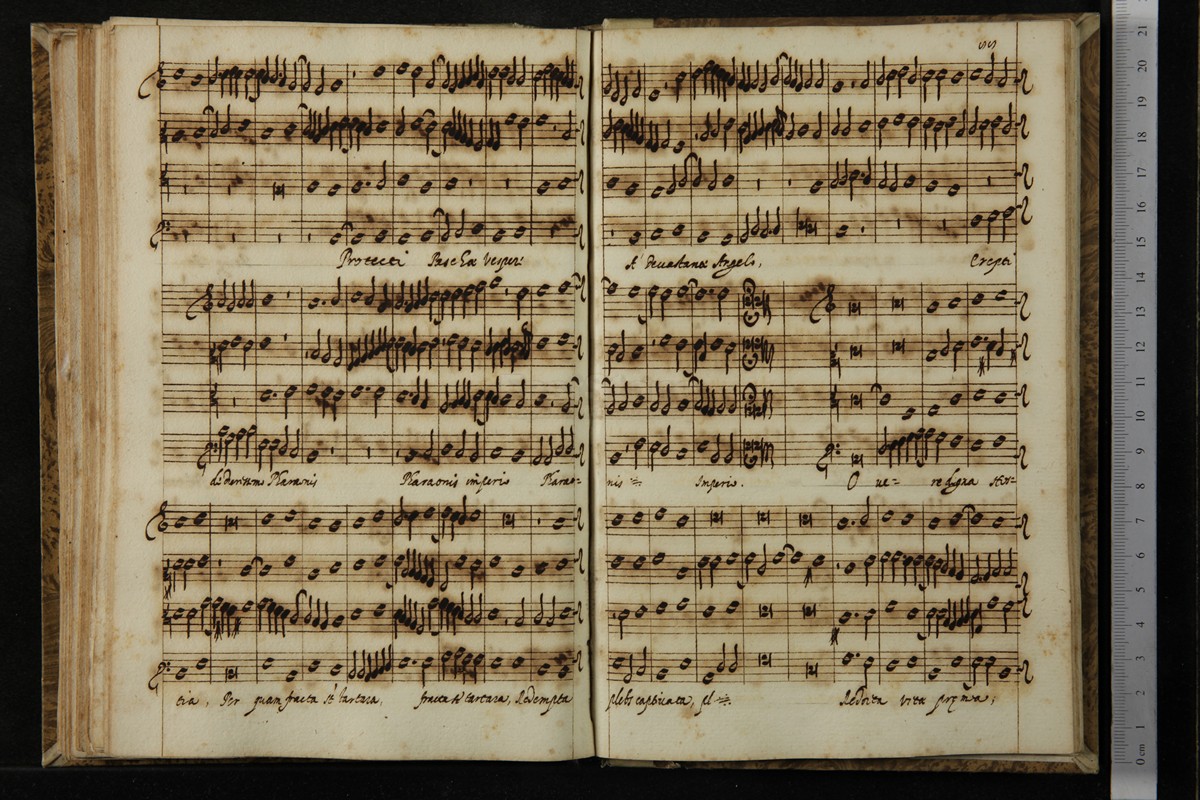 55
Protecti Paschæ vesperi
A' deuastante Angelo,
Erepti
Pharaonis Pharaonis imperio Pharao=
nis Imperio.
O ue= re digna Hos=
tia, Per quam fracta st' tartara, fracta st' tartara, Redempta
plebs captiuata, pl
Reddita vitæ præmia,
0 cm 1 2 3 4 5 6 7 8 9 10 11 12 13 14 15 16 17 18 19 20 21